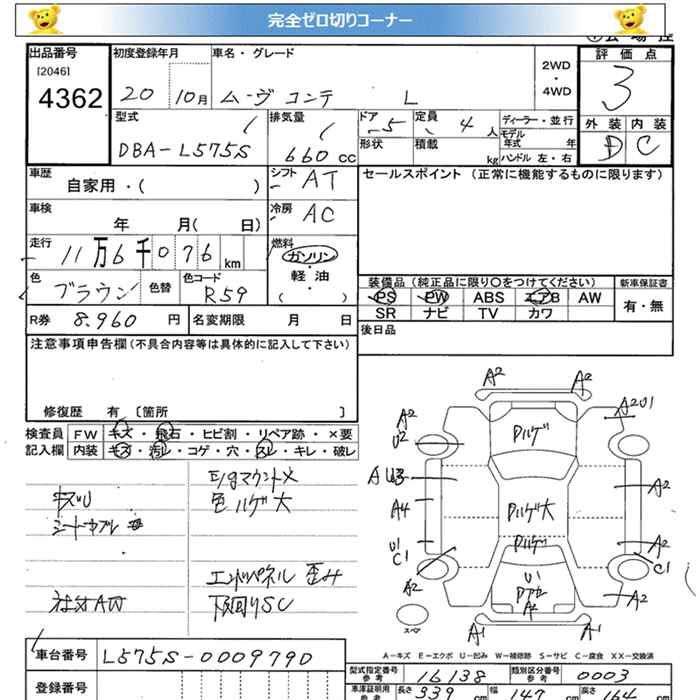 完全ゼロ切りコーナー
出品番号
[2046]
4362
初度登録年月
20 10月
車名・グレード
ムーヴ コンテ L
2WD
・
4WD
評価点
3
外装 内装
D C
型式
DBA-L575S
排気量
660 cc
ドア
5
定員
4 人
形状
積載
kg
ディーラー・並行
モデル年式 年
ハンドル 左・右
車歴
自家用・( )
シフト
AT
セールスポイント (正常に機能するものに限ります)
車検
年 月( 日)
冷房
AC
走行
11万6千076 km
燃料
ガソリン
・
軽油
・
( )
色
ブラウン
色替
色コード
R59
装備品(純正品に限り○をつけてください)
PS PW ABS エアB AW
SR ナビ TV カワ
新車保証書
有・無
R券 8,960 円
名変期限 月 日
後日品
注意事項申告欄(不具合内容等は具体的に記入して下さい)
修復歴 有 [箇所 ]
検査員記入欄
FW キズ・飛石・ヒビ割・リペア跡・×要
内装 キズ・汚レ・コゲ・穴・スレ・キレ・破レ
E/gマウント×
色ハゲ大
キズU
シートヤブレ
エンドパネル 歪み
下回りSC
A2 A2
A2
U2
A2U1
ハゲ
A U3
A2
A4
ハゲ大
ハゲ
U1
C1
A2
C1
U1
A2
A2
A2
スペア
A1 A1
A－キズ E－エクボ U－凹み W－補修跡 S－サビ C－腐食 XX－交換済
車台番号
L575S-0009790
登録番号
型式指定番号
参考
16138
類別区分番号
参考
0003
車庫証明用
参考
長さ 339 cm
幅 147 cm
高さ 164 cm